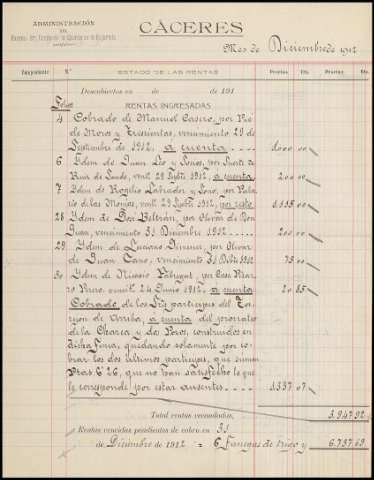 ADMINISTRACIÓN
DE
CÁCERES
Mes de Diciembre de 1912
Comprobantes N.º ESTADO DE LAS RENTAS Pesetas Cts. Pesetas Cts.
Descubiertos en de de 191
Folios RENTAS INGRESADAS
4 Cobrado de Manuel Casero, por Pié
de Moros y vencimiento 29 de
Septiembre de 1912, a cuenta 1.000 00
6 Idem de Juan Leo y Sones, por Suerte de
venmtº 29 Sepbre 1912, a cuenta 200 00
7 Idem de Rogelio Labrador y Sono, por Pala-
cio de las Monjas, venmtº 29 Sepbre 1912, por resto
28 Idem de José Beltrán, por Olivar de Don
Juan, vencimiento 31 Diciembre 1912 200 00
29 Idem de Luciano Jimenez, por Olivar
de Juan Cano, vencimiento 31 Dcbre 1912 75 00
30 Idem de por Casa Pizar-
ro 24 Junio 1912, a cuenta 20 85
Cobrado de los Srs partícipes del Tor-
rejon de Arriba, a cuenta del prorrateo
de la Charca y dos Pozos, construidos en
dicha Finca, quedando solamente por co-
brar los dos últimos partícipes, que suman
Ptas 6'26, que no han satisfecho lo que
le corresponde por estar ausentes 1.337 07
Total rentas recaudadas, 3.947 92
Rentas vencidas pendientes de cobro en 31
de Diciembre de 1912 = 6 Fanegas de trigo y 6.737 69